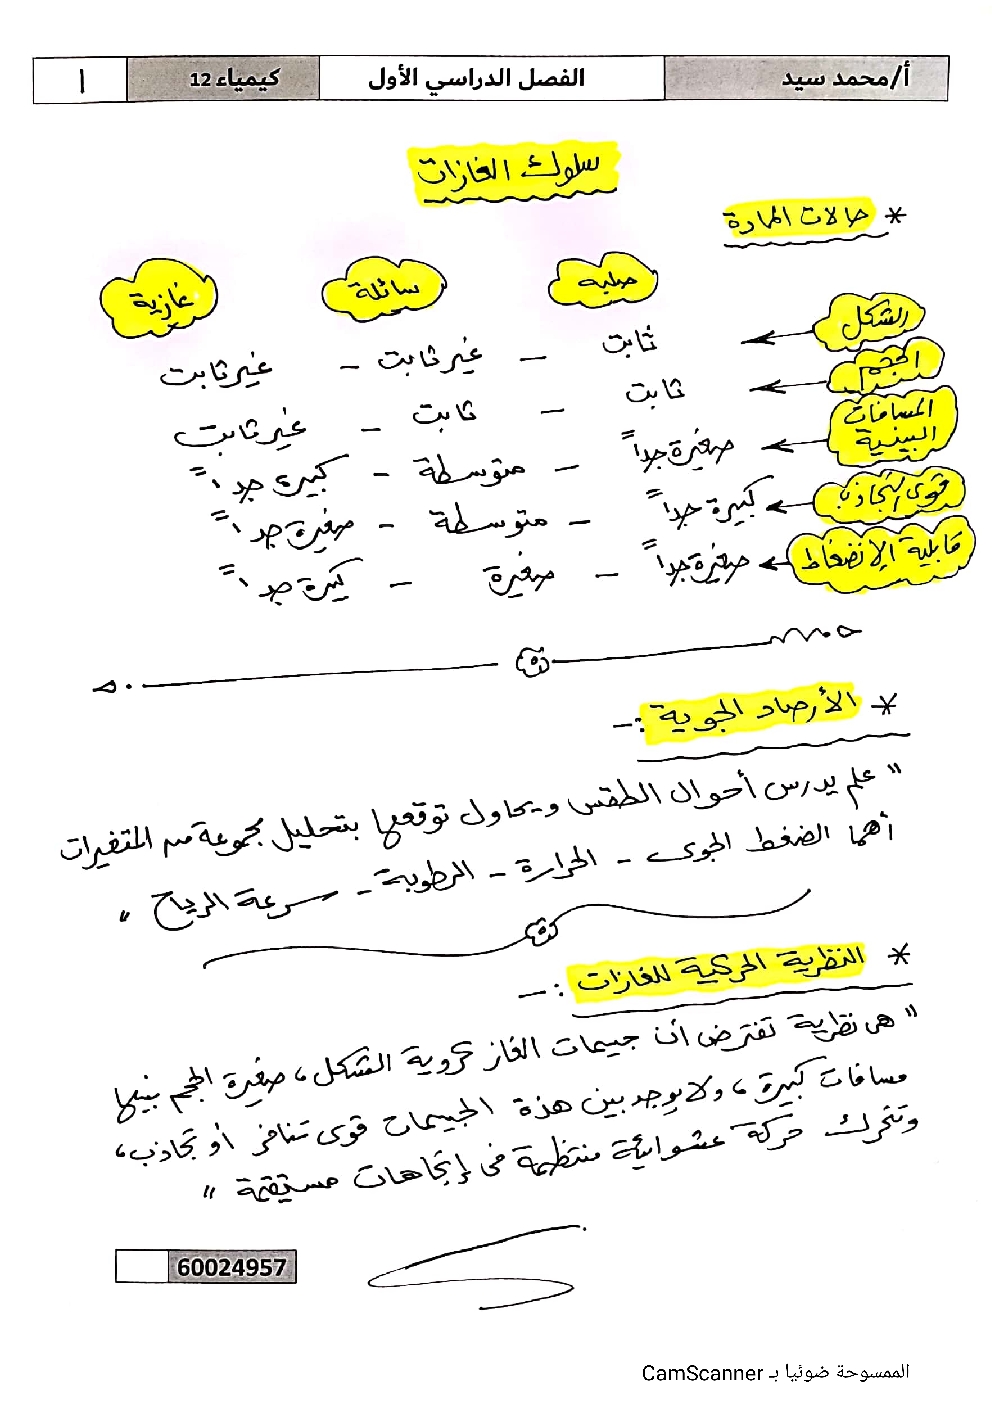 أ/محمد سيد الفصل الدراسي الأول كيمياء 12 ١
سلوك الغازات
* حالات المادة
صلبه سائلة غازية
الشكل ← ثابت – غير ثابت – غير ثابت
الحجم ← ثابت – ثابت – غير ثابت
المسافات البينية ← صغيرة جداً – متوسطة – كبيرة جداً
قوى التجاذب ← كبيرة جداً – متوسطة – صغيرة جداً
قابلية الإنضغاط ← صغيرة جداً – صغيرة – كبيرة جداً
* الأرصاد الجوية :-
" علم يدرس أحوال الطقس ويحاول توقعها بتحليل مجموعة من المتغيرات
أهما الضغط الجوى - الحرارة - الرطوبة - سرعة الرياح "
* النظرية الحركية للغازات :-
" هى نظرية تفترض أن جسيمات الغاز كروية الشكل، صغيرة الحجم بينها
مسافات كبيرة، ولا يوجد بين هذة الجسيمات قوى تنافر أو تجاذب،
وتتحرك حركة عشوائية منتظمة فى إتجاهات مستقيمة "
60024957
الممسوحة ضوئيا بـ CamScanner